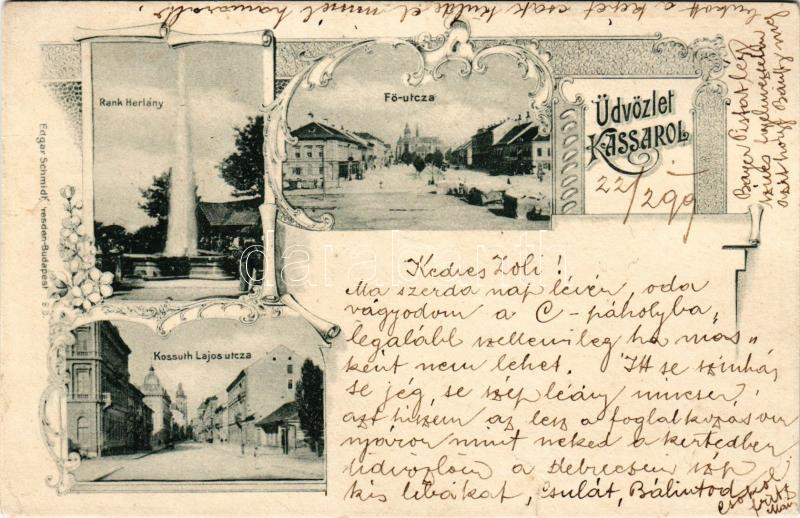 lukott a képet csak küldd el minél hamarabb
Rank Herlány
Fő-utcza
Üdvözlet
KASSAROL
22/2 99
Bayer
szives
azt hogy
Edgar Schmidt, resden-Budapest
Kossuth Lajos utcza
darabanth
Kedves Zoli!
Ma szerda nap lévén, oda
vágyodom a C-páholyba,
legalább szellemileg ha más-
ként nem lehet. Itt se színház
se jég, se szép leány nincsen,
azt hiszem az lesz a foglalkozásom
nyáron mint neked a kertedben
üdvözlöm a debreczeni szép
kis libákat, Gyulát, Bálintod
csókol